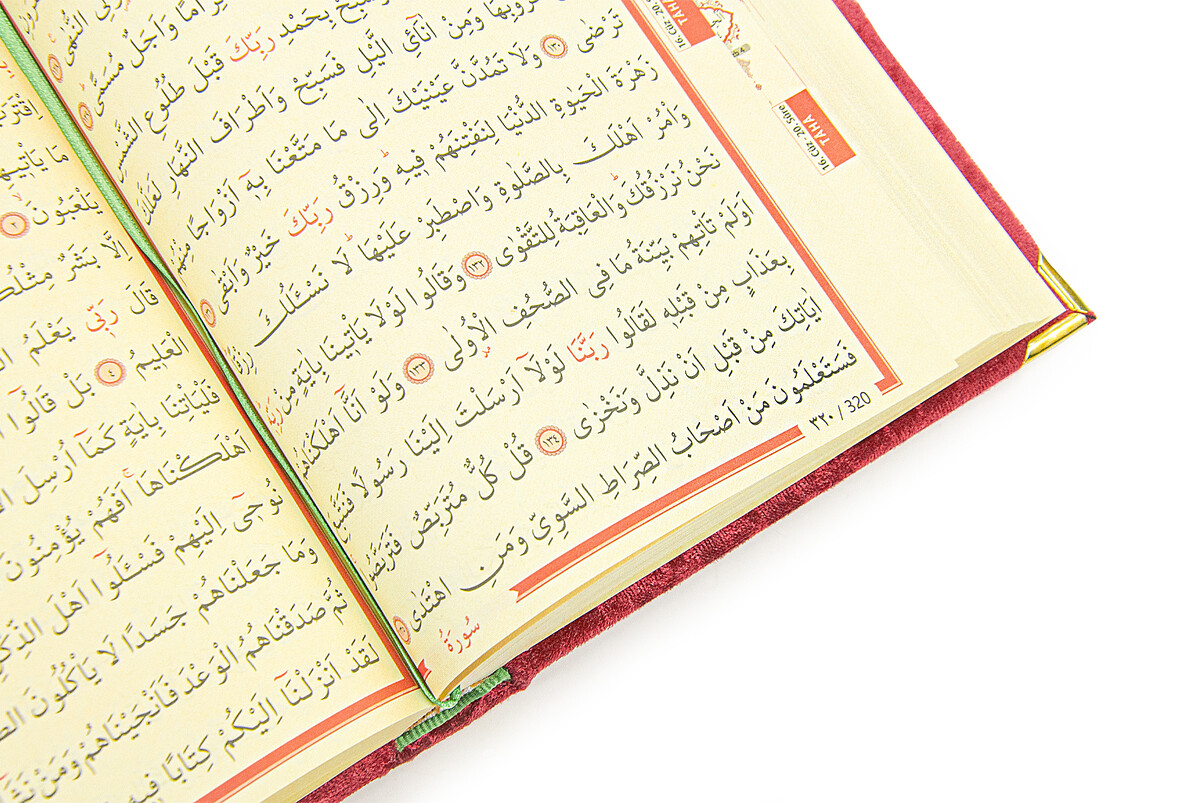 وَاَجَلٌ مُسَمًّى
بِحَمْدِ رَبِّكَ قَبْلَ طُلُوعِ الشَّمْسِ
وَمِنْ اٰنَائِ الَّيْلِ فَسَبِّحْ وَاَطْرَافَ النَّهَارِ لَعَلَّكَ
تَرْضٰى ١٣٠ وَلَا تَمُدَّنَّ عَيْنَيْكَ اِلٰى مَا مَتَّعْنَا بِهٖٓ اَزْوَاجًا مِنْهُمْ
زَهْرَةَ الْحَيٰوةِ الدُّنْيَا لِنَفْتِنَهُمْ فٖيهِ وَرِزْقُ رَبِّكَ خَيْرٌ وَاَبْقٰى
وَأْمُرْ اَهْلَكَ بِالصَّلٰوةِ وَاصْطَبِرْ عَلَيْهَا لَا نَسْـَٔلُكَ رِزْقًا
نَحْنُ نَرْزُقُكَ وَالْعَاقِبَةُ لِلتَّقْوٰى ١٣٢ وَقَالُوا لَوْلَا يَأْتٖينَا بِاٰيَةٍ مِنْ رَبِّهٖ
اَوَلَمْ تَأْتِهِمْ بَيِّنَةُ مَا فِى الصُّحُفِ الْاُولٰى ١٣٣ وَلَوْ اَنَّٓا اَهْلَكْنَاهُمْ
بِعَذَابٍ مِنْ قَبْلِهٖ لَقَالُوا رَبَّنَا لَوْلَٓا اَرْسَلْتَ اِلَيْنَا رَسُولًا فَنَتَّبِعَ
اٰيَاتِكَ مِنْ قَبْلِ اَنْ نَذِلَّ وَنَخْزٰى ١٣٤ قُلْ كُلٌّ مُتَرَبِّصٌ فَتَرَبَّصُوا
فَسَتَعْلَمُونَ مَنْ اَصْحَابُ الصِّرَاطِ السَّوِىِّ وَمَنِ اهْتَدٰى
٣٢٠ / 320
سُورَةُ
TÂHÂ
16. Cüz - 20.
TÂHÂ
16. Cüz - 20. Sûre
مَا يَأْتٖيهِمْ
يَلْعَبُونَ ٢
اِلَّا بَشَرٌ مِثْلُكُمْ
قَالَ رَبّٖى يَعْلَمُ
الْعَلٖيمُ ٤ بَلْ قَالُٓوا
فَلْيَأْتِنَا بِاٰيَةٍ كَمَٓا اُرْسِلَ
اَهْلَكْنَاهَا اَفَهُمْ يُؤْمِنُونَ
نُوحٖٓى اِلَيْهِمْ فَسْـَٔلُٓوا اَهْلَ الذِّكْرِ
وَمَا جَعَلْنَاهُمْ جَسَدًا لَا يَأْكُلُونَ
ثُمَّ صَدَقْنَاهُمُ الْوَعْدَ فَاَنْجَيْنَاهُمْ وَمَنْ
لَقَدْ اَنْزَلْنَٓا اِلَيْكُمْ كِتَابًا فٖيهِ